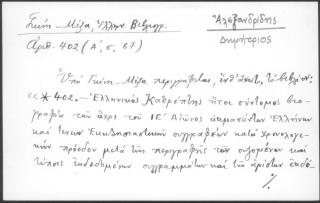 Γκίνη - Μέξα, Ἑλλην. Βιβλιογρ.
Ἀλεξανδρίδης
Δημήτριος
Ἀριθ. 402 (Α', σ. 67)
Ὑπὸ Γκίνη - Μέξα περιγράφεται, ἐνθ' ἀνωτ., τὸ βιβλίον:
«*402. – Ἑλληνικὸς Καθρέπτης ἤτοι σύντομος βιο-
γραφία τῶν ἄχρι τοῦ ΙΕ' Αἰῶνος ἀκμασάντων Ἑλλήνων
καὶ τινων Ἐκκλησιαστικῶν συγγραφέων κατὰ χρονολογι-
κὴν πρόοδον μετὰ τῆς περιγραφῆς τῶν σωζομένων καὶ
τύποις ἐκδεδομένων συγγραμμάτων καὶ τῶν ἀρίστων ἐκδό-